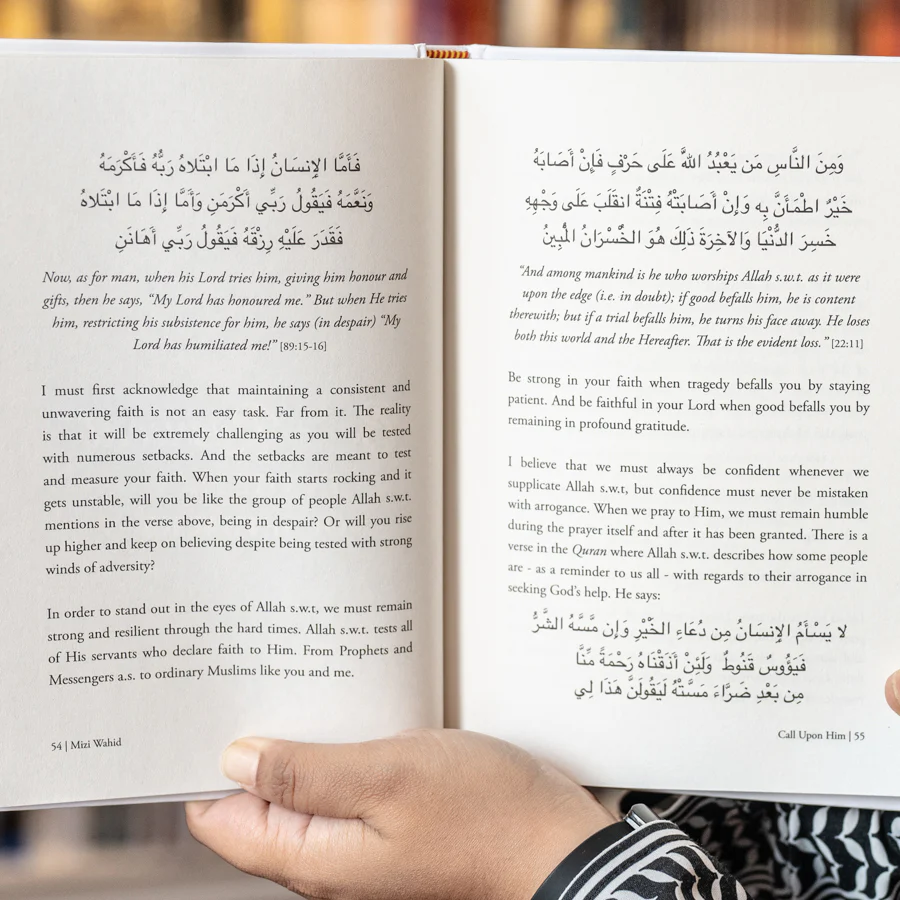 فَأَمَّا الإِنسَانُ إِذَا مَا ابْتَلاهُ رَبُّهُ فَأَكْرَمَهُ
وَنَعَّمَهُ فَيَقُولُ رَبِّي أَكْرَمَنِ وَأَمَّا إِذَا مَا ابْتَلاهُ
فَقَدَرَ عَلَيْهِ رِزْقَهُ فَيَقُولُ رَبِّي أَهَانَنِ
Now, as for man, when his Lord tries him, giving him honour and
gifts, then he says, “My Lord has honoured me.” But when He tries
him, restricting his subsistence for him, he says (in despair) “My
Lord has humiliated me!” [89:15-16]
I must first acknowledge that maintaining a consistent and
unwavering faith is not an easy task. Far from it. The reality
is that it will be extremely challenging as you will be tested
with numerous setbacks. And the setbacks are meant to test
and measure your faith. When your faith starts rocking and it
gets unstable, will you be like the group of people Allah s.w.t.
mentions in the verse above, being in despair? Or will you rise
up higher and keep on believing despite being tested with strong
winds of adversity?
In order to stand out in the eyes of Allah s.w.t, we must remain
strong and resilient through the hard times. Allah s.w.t. tests all
of His servants who declare faith to Him. From Prophets and
Messengers a.s. to ordinary Muslims like you and me.
54 | Mizi Wahid
وَمِنَ النَّاسِ مَن يَعْبُدُ اللَّهَ عَلَى حَرْفٍ فَإِنْ أَصَابَهُ
خَيْرٌ اطْمَأَنَّ بِهِ وَإِنْ أَصَابَتْهُ فِتْنَةٌ انقَلَبَ عَلَى وَجْهِهِ
خَسِرَ الدُّنْيَا وَالآخِرَةَ ذَلِكَ هُوَ الْخُسْرَانُ الْمُبِينُ
“And among mankind is he who worships Allah s.w.t. as it were
upon the edge (i.e. in doubt); if good befalls him, he is content
therewith; but if a trial befalls him, he turns his face away. He loses
both this world and the Hereafter. That is the evident loss.” [22:11]
Be strong in your faith when tragedy befalls you by staying
patient. And be faithful in your Lord when good befalls you by
remaining in profound gratitude.
I believe that we must always be confident whenever we
supplicate Allah s.w.t, but confidence must never be mistaken
with arrogance. When we pray to Him, we must remain humble
during the prayer itself and after it has been granted. There is a
verse in the Quran where Allah s.w.t. describes how some people
are - as a reminder to us all - with regards to their arrogance in
seeking God’s help. He says:
لا يَسْأَمُ الإِنسَانُ مِن دُعَاءِ الْخَيْرِ وَإِن مَّسَّهُ الشَّرُّ
فَيَؤُوسٌ قَنُوطٌ وَلَئِنْ أَذَقْنَاهُ رَحْمَةً مِّنَّا
مِن بَعْدِ ضَرَّاءَ مَسَّتْهُ لَيَقُولَنَّ هَذَا لِي
Call Upon Him | 55